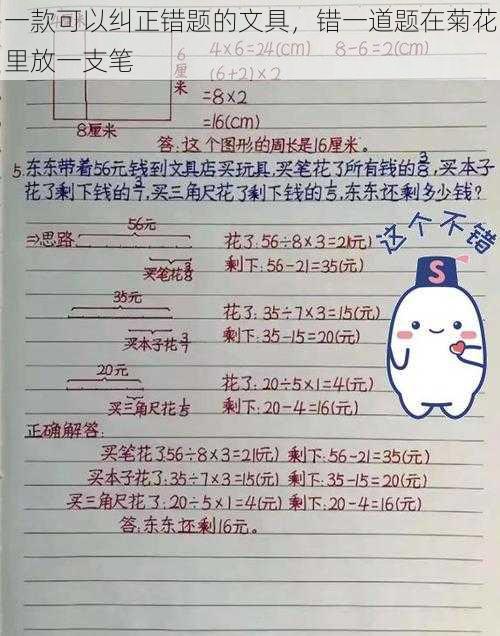 一款可以纠正错题的文具，错一道题在菊花
里放一支笔
6厘米
4×6=24(cm) 8-6=2(cm)
(6+2)×2
=8×2
=16(cm)
8厘米
答:这个图形的周长是16厘米。
5.东东带着56元钱到文具店买玩具,买笔花了所有钱的3/8,买本子
花了剩下钱的3/7,买三角尺花了剩下钱的1/5,东东还剩多少钱?
56元
⇒思路 花了:56÷8×3=21(元)
买笔花3/8 剩下:56-21=35(元)
这个不错
S
35元
花了:35÷7×3=15(元)
买本子花3/7 剩下:35-15=20(元)
20元
花了:20÷5×1=4(元)
买三角尺花1/5 剩下:20-4=16(元)
正确解答:
买笔花了:56÷8×3=21(元) 剩下:56-21=35(元)
买本子花了:35÷7×3=15(元) 剩下:35-15=20(元)
买三角尺花了:20÷5×1=4(元) 剩下:20-4=16(元)
答:东东还剩16元。